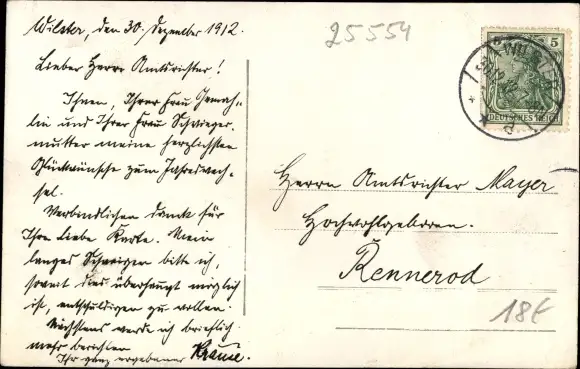 Wilster, den 30. Dezember 1912.
Lieber Herr Amtsrichter!
Ihnen, Ihrer Frau Gemah-
lin und Ihrer Frau Schwieger-
mutter meine herzlichsten
Glückwünsche zum Jahreswech-
sel.
Verbindlichen Dank für
Ihre liebe Karte. Mein
langes Schweigen bitte ich,
soweit dies überhaupt möglich
ist, entschuldigen zu wollen.
Nächstens werde ich brieflich
mehr berichten
Ihr ganz ergebener Krause.
25554
5
DEUTSCHES REICH
Herrn Amtsrichter Mayer
Hochwohlgeboren.
Rennerod
18€